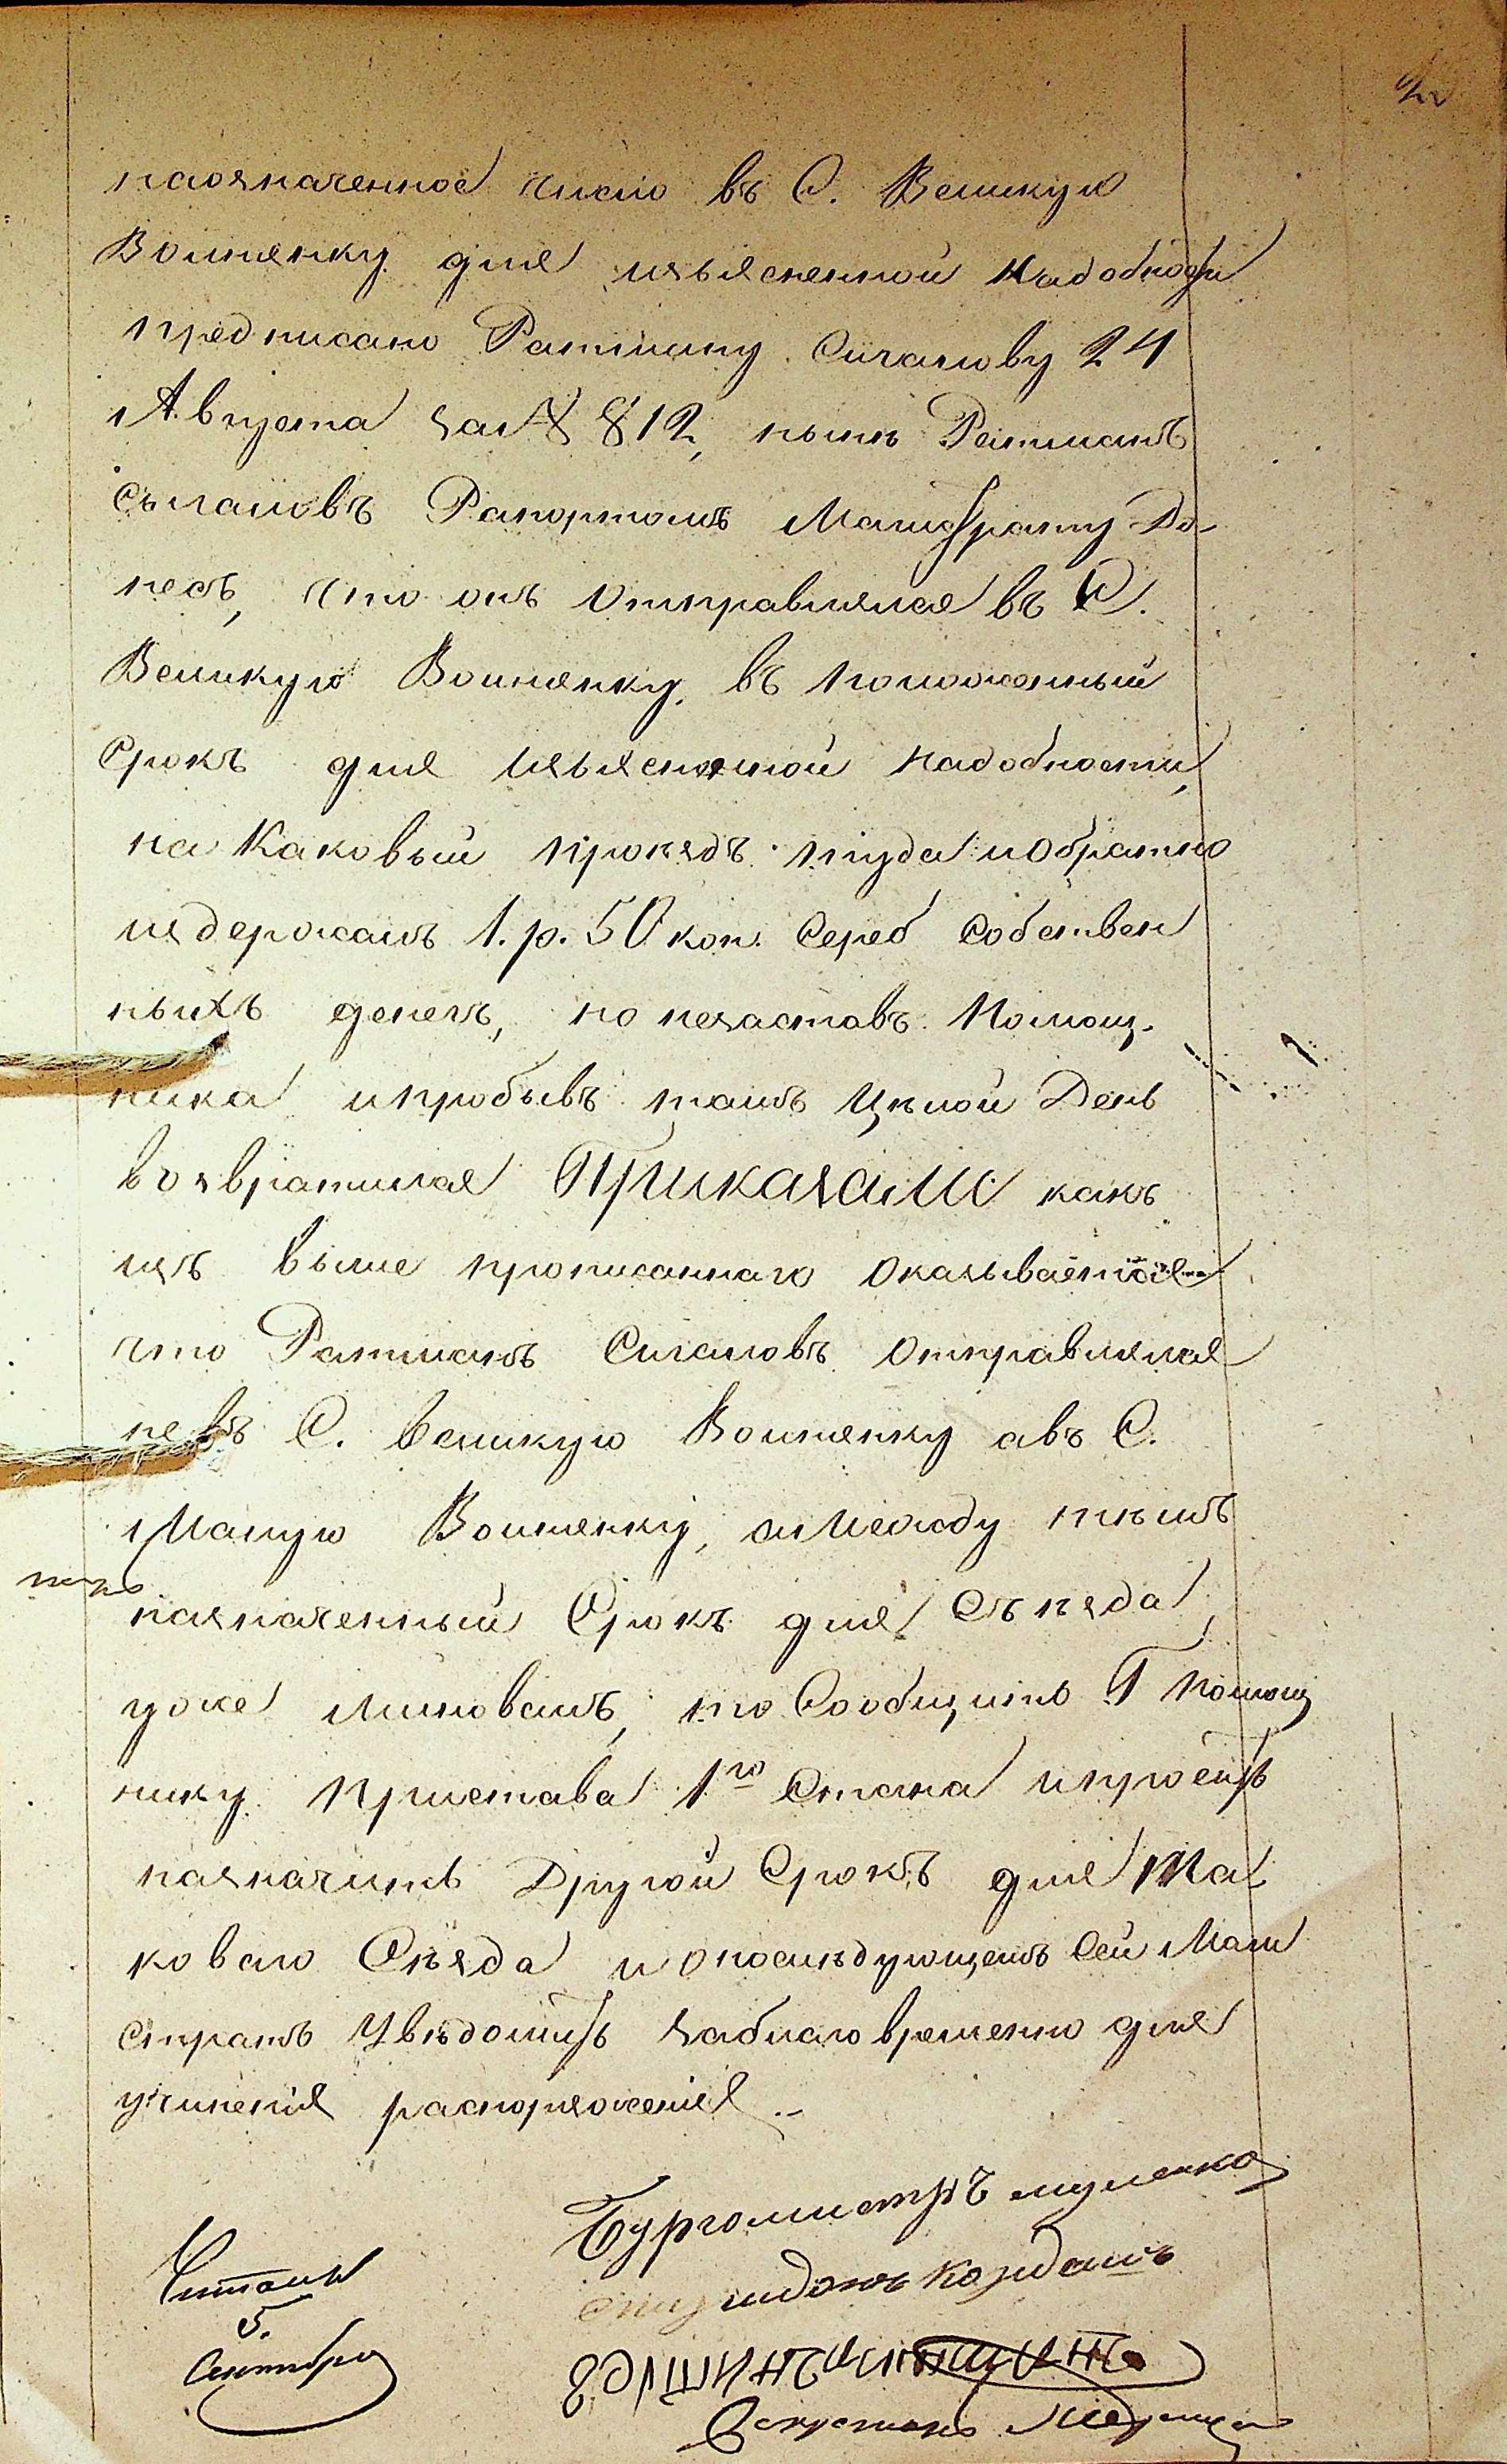 наозначенное число въ С. Великую
Вошненку для изъясненной надобности
предписано Ратману Сигалову 24
Августа за № 812, нынѣ Ратманъ
Сыгаловъ Рапортомъ Магистрату До-
несъ, что онъ отправлялся въ С.
Великую Вошненку, въ положенный
Срокъ для изъясненной надобности,
на каковый проѣздъ туда и обратно
издержалъ 1. р. 50 коп. Сереб Собствен
ныхъ денегъ, но незаставъ Помощ-
ника ипробывъ тамъ цѣлой День
возвратился Приказали какъ
изъ выше прописаннаго оказывается
что Ратманъ Сигаловъ отправлялся
не въ С. Великую Вошненку авъ С.
Малую Вошненку, амежду тѣмъ
назначенный Срокъ для Съѣзда
уже миновалъ, то Сообщить Г Помощ
нику Пристава 1го Стана ипросить
назначить Другой Срокъ для та
коваго Съѣзда и опослѣдующемъ Сей Маги
стратъ Увѣдомить заблаговременно для
учиненія распоряженія
Бургомистръ
Читалъ
5.
Сентября
Секретарь